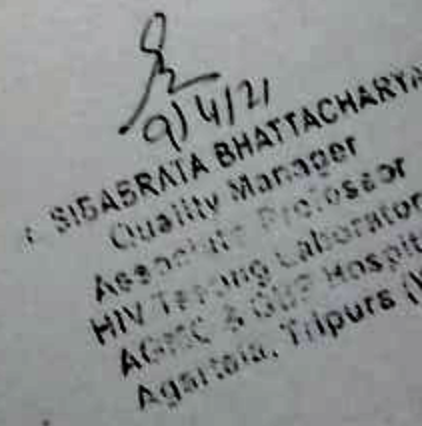 9/4/21
SIBABRATA BHATTACHARYA
Quality Manager
Associate Professor
HIV Testing Laborator
AGMC & GBP Hospit
Agartala, Tripura (